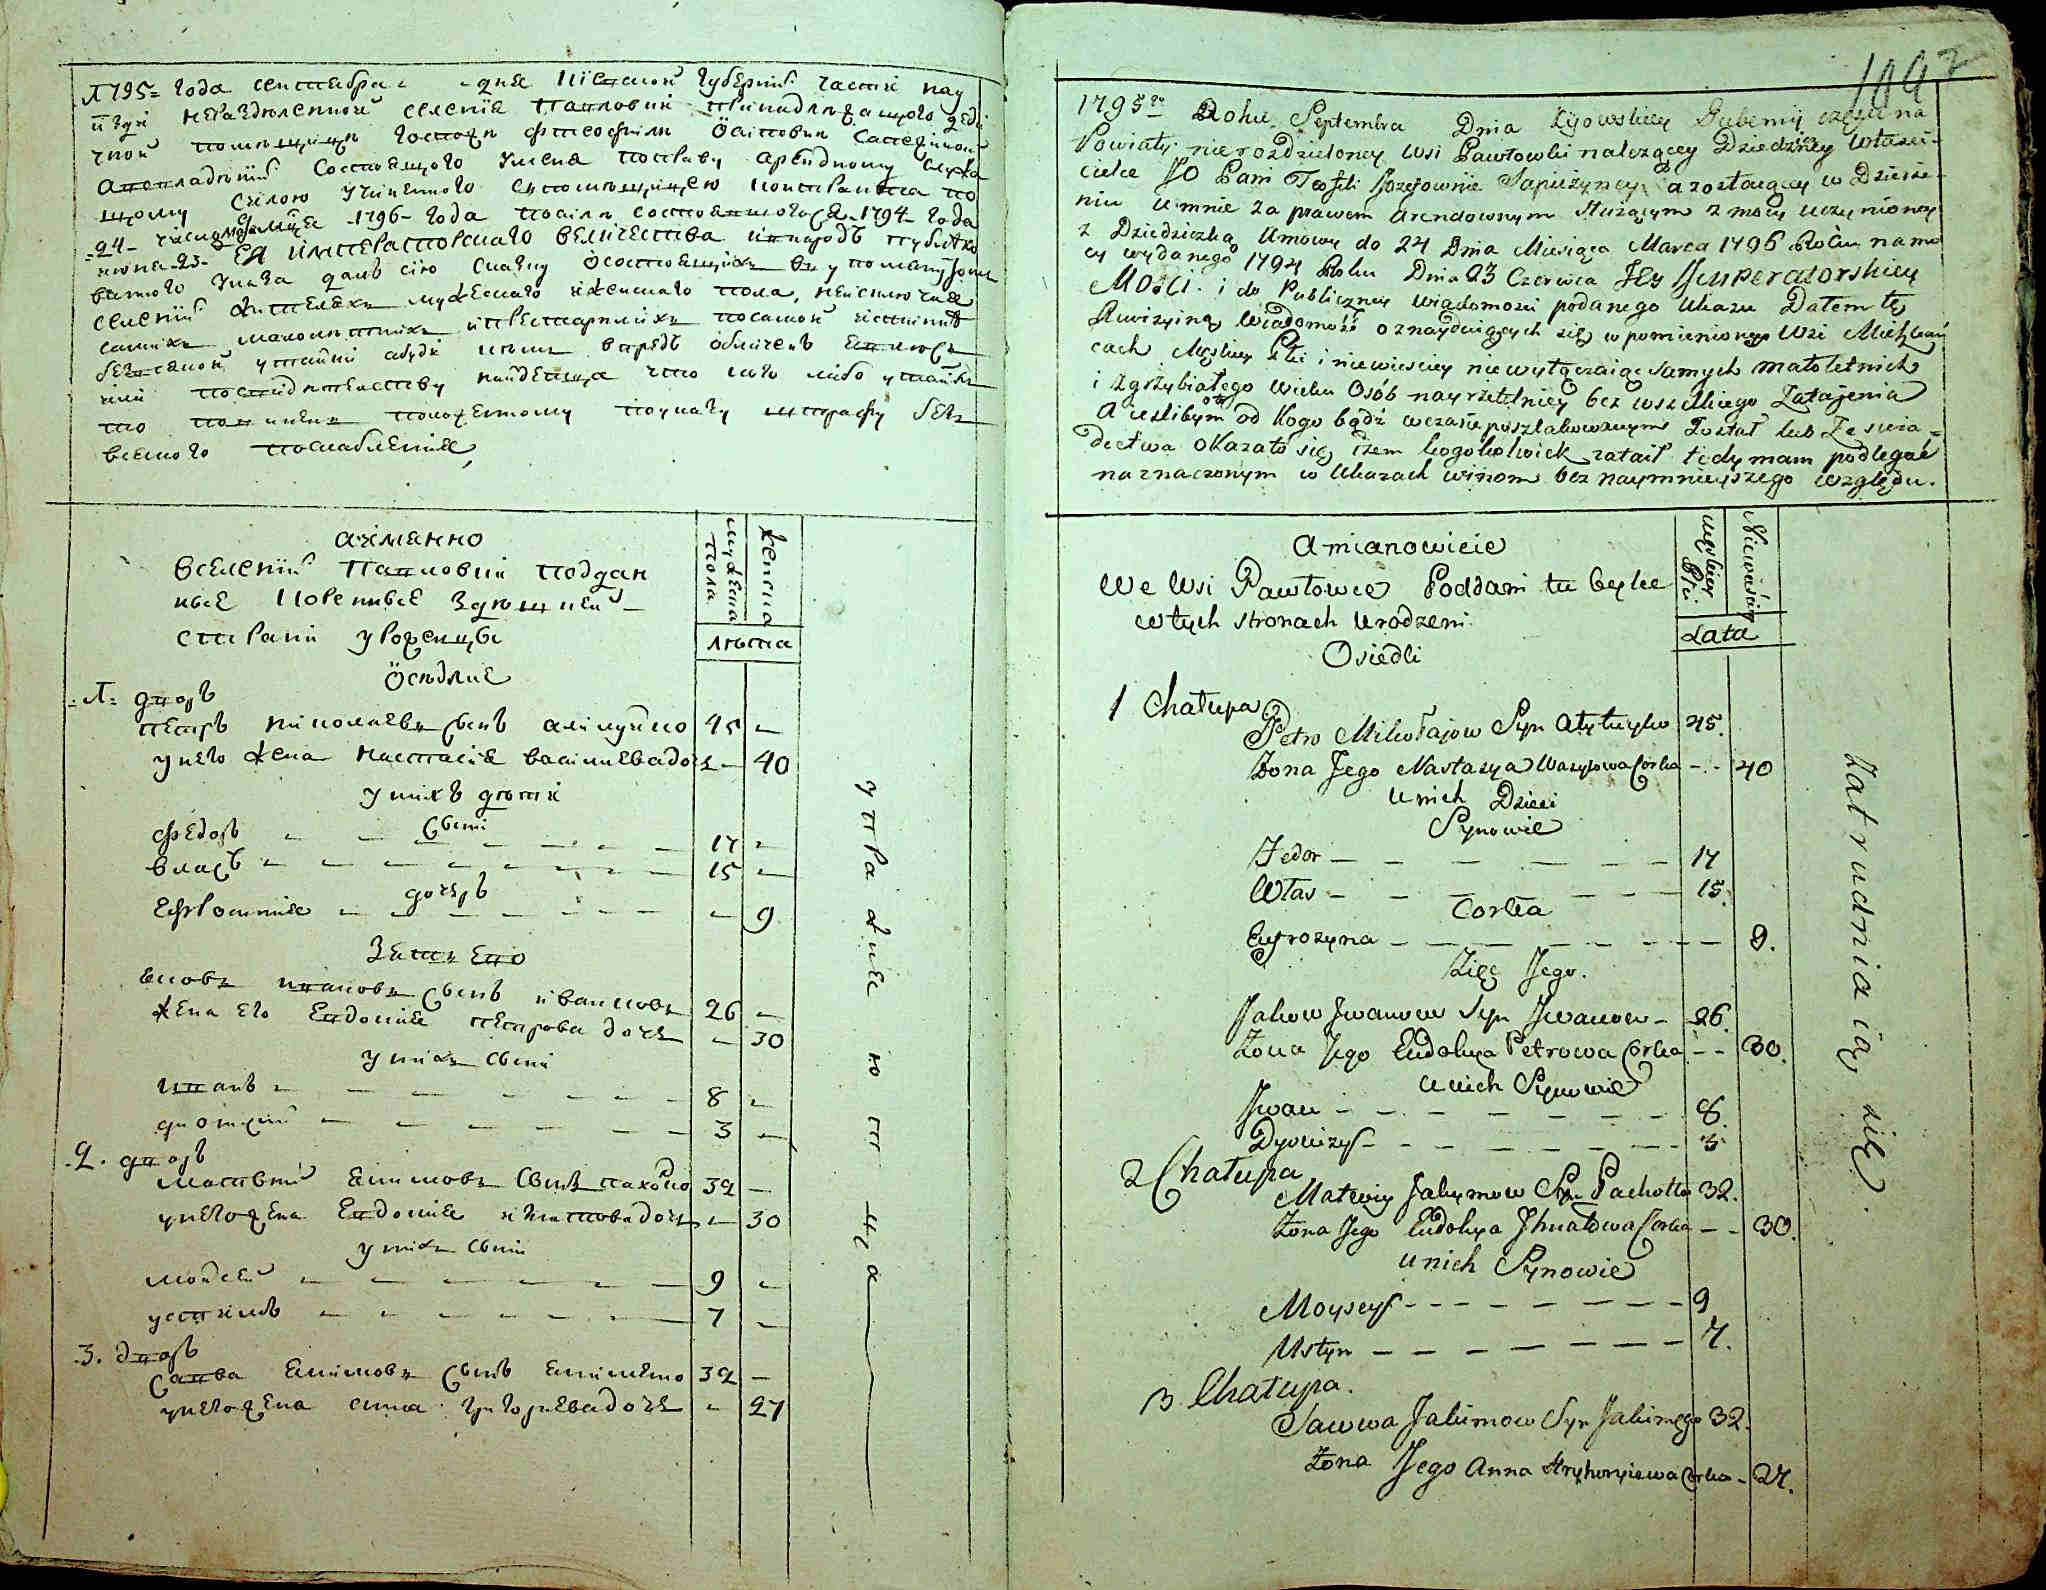 1795= года сентября дня Киевской Губернии части на у
езди неразделенной селение Павловки принадлежащого деди
чной помещици госпожи Феофили Осиповни Сапежиной
состоящого уменя поправу арендному служа
щому силою учиненного спомещицею контракта по
24- число 1796- года после состоявшогося 1794- года
июня 23- Ея Императорского величества и народ публико
ванного указа дань сию сказку осостоящих в упомянутом
селении жителях мужеского и женского пола, неисключая
самих малолетних и престарелих посамой истинне
без всякой утайки абуде кемъ впредь обличенъ
или посвидетельству найдется что кого либо утаилъ
то повинен положенному поуказу штрафу безъ
всякого послабления,
аименно
вселении Павловки поддан
ные коренные здешней
сторани уроженци
Оседлие
мужеска пола
женска
лета
.1. дворъ
Петръ николаевъ сынъ алилуйко 45 -
унего жена настасия васильева дочь - 40
унихъ дети
сыни
Федоръ - - - 17 -
власъ - - - 15 -
дочерь
Ефросиния - - - 9
Зять его
яковъ ивановъ сынъ ивановъ 26 -
жена его Евдокия петрова дочь - 30
унихъ сыни
иванъ - - - 8 -
- - - 3 -
.2. дворъ
матвей якимовъ сынъ пахолко 32 -
унего жена Евдокия игнатова дочь - 30
унихъ сыни
мойсей - - - 9 -
устимъ - - - 7 -
.3. дворъ
Савва якимовъ сынъ якименко 32 -
унего жена анна григорьева дочь - 27
упражняются
1795go Roku Septembra Dnia Kijowskiey Gubernij części na
Powiaty nierozdzieloney Wsi Pawłowki należącey Dziedziczney Właści-
cielce JO Pani Teofili Jozefownie Sapieżyney, a zostaiącey w Dzierże-
niu u mnie za prawem Arendownym służącym z mocy uczynioney
z Dziedziczką Umowy do 24 Dnia Miesiąca Marca 1796 Roku na mo
cy wydanego 1794 Roku Dnia 23 Czerwca Jey Jmperatorskiey
Mości i do Publiczney wiadomości podanego Ukazu Datem tę
Rewizyiną Wiadomość o znayduiących się w pomienioney Wsi Mieszkań
cach Męskiey Płci i niewieściey niewyłączaiąc samych małoletnich
i zgrzybiałego wieku Osób nayrzetelniey bez wszelkiego Zatajenia
A ieslibym od Kogo bądź wczasie poszlakowanym Został lub Ze swia-
dectwa okazało się iżem kogokolwiek zataił tedy mam podlegać
naznaczonym w Ukazach winom bez naymnieyszego względu.
Amianowicie
We Wsi Pawłowce Poddani tu tylko
w tych stronach Urodzeni
Osiedli
męskiey Płci
Niewieściey
Lata
1 Chałupa
Petro Mikołajow Syn Ałyłuyko 45.
Żona Jego Nastazya Wasylowa Corka - - 40
U nich Dzieci
Synowie
Fedor - - - 17
Włas - - - 15.
Corka
Eufrozyna - - - 9.
Zięć Jego.
Jakow Jwanow Syn Jwanow - 26.
Żona Jego Eudokya Petrowa Corka - - 30.
U nich Synowie
Jwan - - - 8.
Dyonizy - - - 3
2 Chałupa
Matwiy Jakymow Syn Pachołko 32.
Żona Jego Eudokya Jhnatowa Corka - - 30.
U nich Synowie
Moysey - - - 9
Ustyn - - - 7.
3 Chałupa.
Sawwa Jakimow Syn Jakimęko 32.
Żona Jego Anna Hryhoryiewa Corka - 27.
Zatrudniaią się.